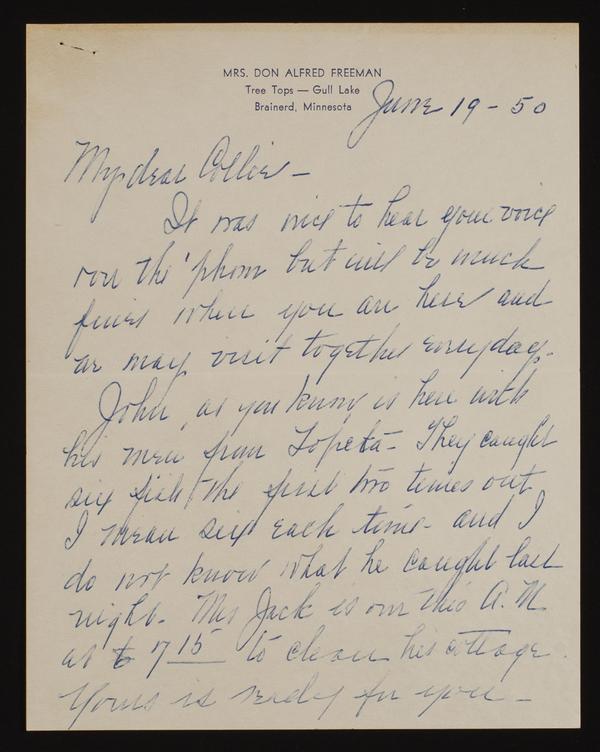 MRS. DON ALFRED FREEMAN
Tree Tops — Gull Lake
Brainerd, Minnesota
June 19 - 50
My dear Collie —
It was nice to hear your voice
over the 'phone but will be much
finer when you are here and
we may visit together everyday.
John, as you know is here with
his men from Topeka - They caught
six fish the first two times out
I mean six each time - and I
do not know what he caught last
night. Mrs Jack is over this A.M.
at 7 15 to clean his cottage.
Yours is ready for you —